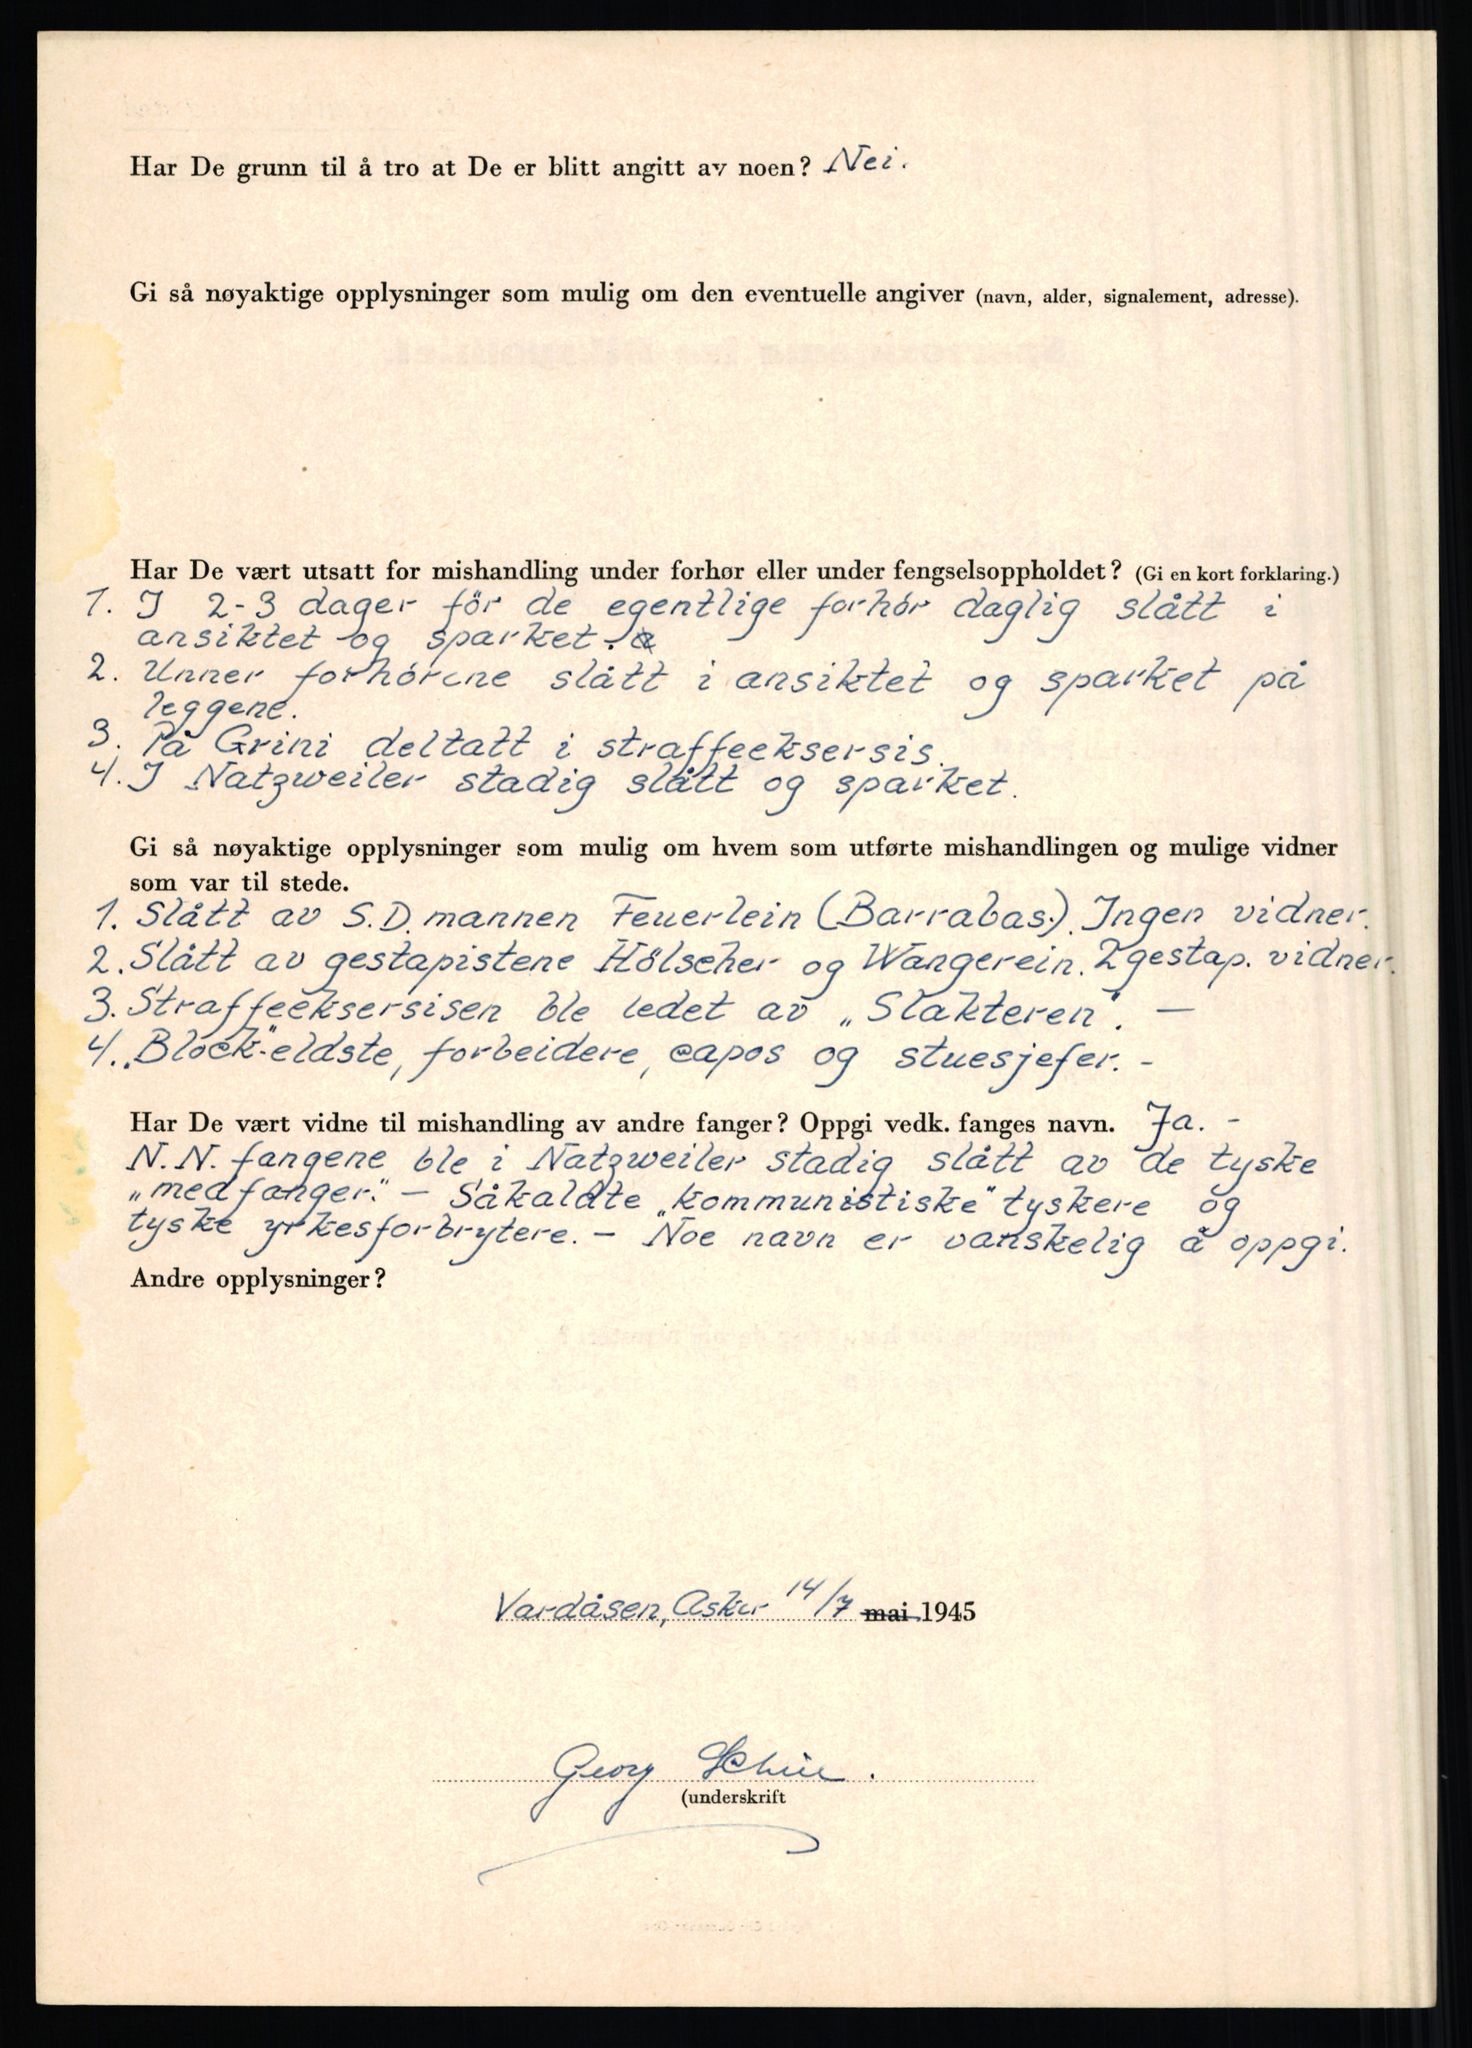 Har De grunn til å tro at De er blitt angitt av noen? Nei.
Gi så nøyaktige opplysninger som mulig om den eventuelle angiver (navn, alder, signalement, adresse).
Har De vært utsatt for mishandling under forhør eller under fengselsoppholdet? (Gi en kort forklaring.)
1. I 2-3 dager før de egentlige forhør daglig slått i
ansiktet og sparket.
2. Unner forhørene slått i ansiktet og sparket på
leggene.
3. På Grini deltatt i straffeeksersis.
4. I Natzweiler stadig slått og sparket.
Gi så nøyaktige opplysninger som mulig om hvem som utførte mishandlingen og mulige vidner
som var til stede.
1. Slått av S.D. mannen Feuerlein (Barrabas). Ingen vidner.
2. Slått av gestapistene Hölscher og Wangerein. 2 gestap. vidner.
3. Straffeeksersisen ble ledet av „Slakteren". —
4. „Block"-eldste, forbeidere, capos og stuesjefer. -
Har De vært vidne til mishandling av andre fanger? Oppgi vedk. fanges navn. Ja. -
N.N. fangene ble i Natzweiler stadig slått av de tyske
„medfanger." — Såkaldte „kommunistiske" tyskere og
tyske yrkesforbrytere. — Noe navn er vanskelig å oppgi.
Andre opplysninger?
Vardåsen, Asker 14/7 mai 1945
Georg
(underskrift